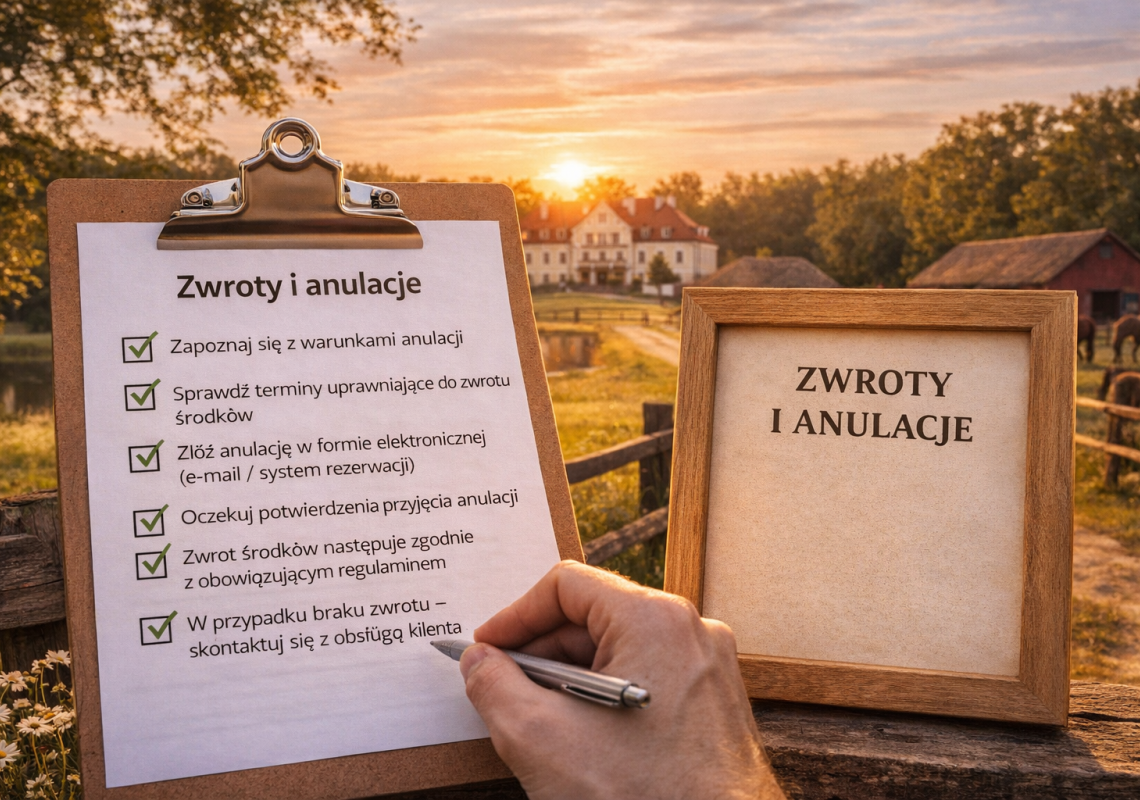 Zwroty i anulacje
Zapoznaj się z warunkami anulacji
Sprawdź terminy uprawniające do zwrotu
środków
Zlőź anulację w formie elektronicznej
(e-mail / system rezerwacji)
Oczekuj potwierdzenia przyjęcia anulacji
Zwrot środków następuje zgodnie
z obowiązującym regulaminem
W przypadku braku zwrotu –
skontaktuj się z obsługą kilenta
ZWROTY
I ANULACJE